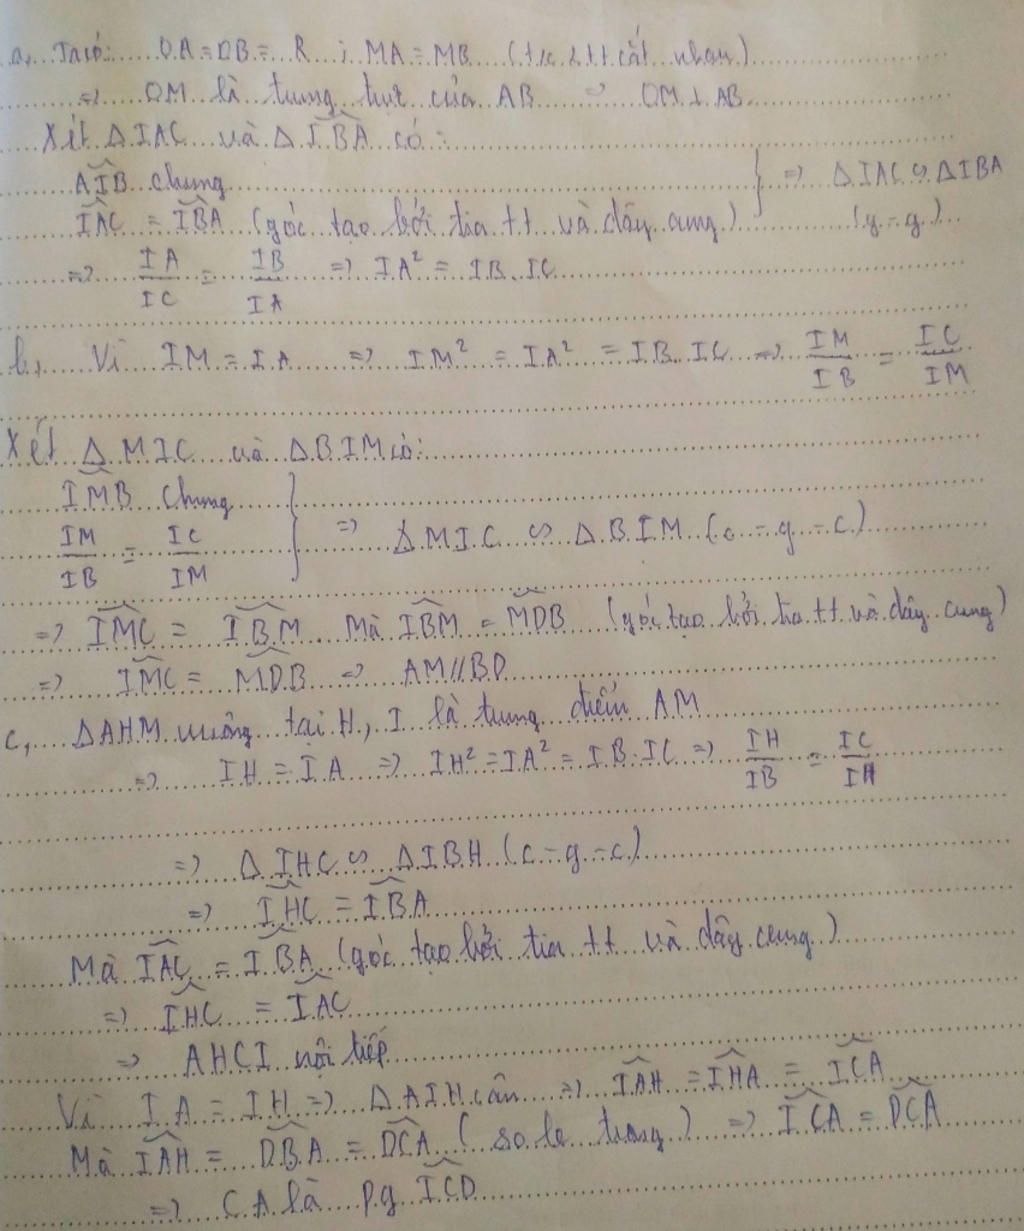 a, Ta có: OA = OB = R ; MA = MB (t/c 2 tt cắt nhau)
=> OM là trung trực của AB => OM ⊥ AB
Xét Δ IAC và Δ IBA có:
AIB chung
IAC = IBA (góc tạo bởi tia tt và dây cung) } => Δ IAC ∽ Δ IBA (g-g)
=> IA/IC = IB/IA => IA² = IB.IC
b, Vì IM = IA => IM² = IA² = IB.IC => IM/IB = IC/IM
Xét Δ MIC và Δ BIM có:
IMB chung
IM/IB = IC/IM } => Δ MIC ∽ Δ BIM (c-g-c)
=> IMC = IBM Mà IBM = MDB (góc tạo bởi tia tt và dây cung)
=> IMC = MDB => AM // BD
c, Δ AHM vuông tại H, I là trung điểm AM
=> IH = IA => IH² = IA² = IB.IC => IH/IB = IC/IH
=> Δ IHC ∽ Δ IBH (c-g-c)
=> IHC = IBA
Mà IAC = IBA (góc tạo bởi tia tt và dây cung)
=> IHC = IAC
=> AHCI nội tiếp
Vì IA = IH => Δ AIH cân => IAH = IHA = ICA
Mà IAH = DBA = DCA (so le trong) => ICA = DCA
=> CA là p.g ICD